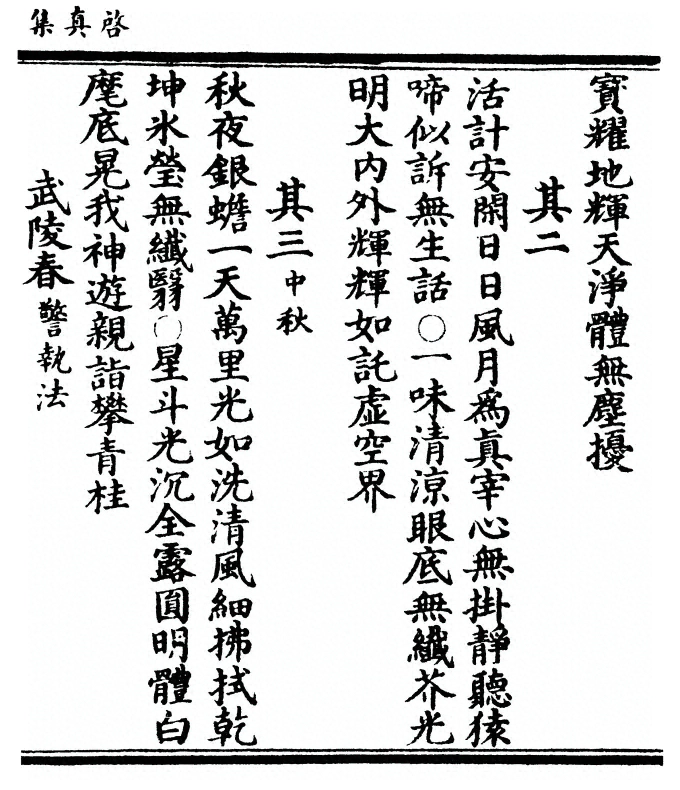 啓真集
寳耀地輝天淨體無塵擾
其二
活計安閑日日風月爲真宰心無掛靜聽猿
啼似訴無生話〇一味清涼眼底無纖芥光
明大内外輝輝如託虚空界
其三中秋
秋夜銀蟾一天萬里光如洗清風細拂拭乾
坤氷瑩無纖翳〇星斗光沉全露圓明體白
麾底晃我神遊親詣攀青桂
武陵春警執法